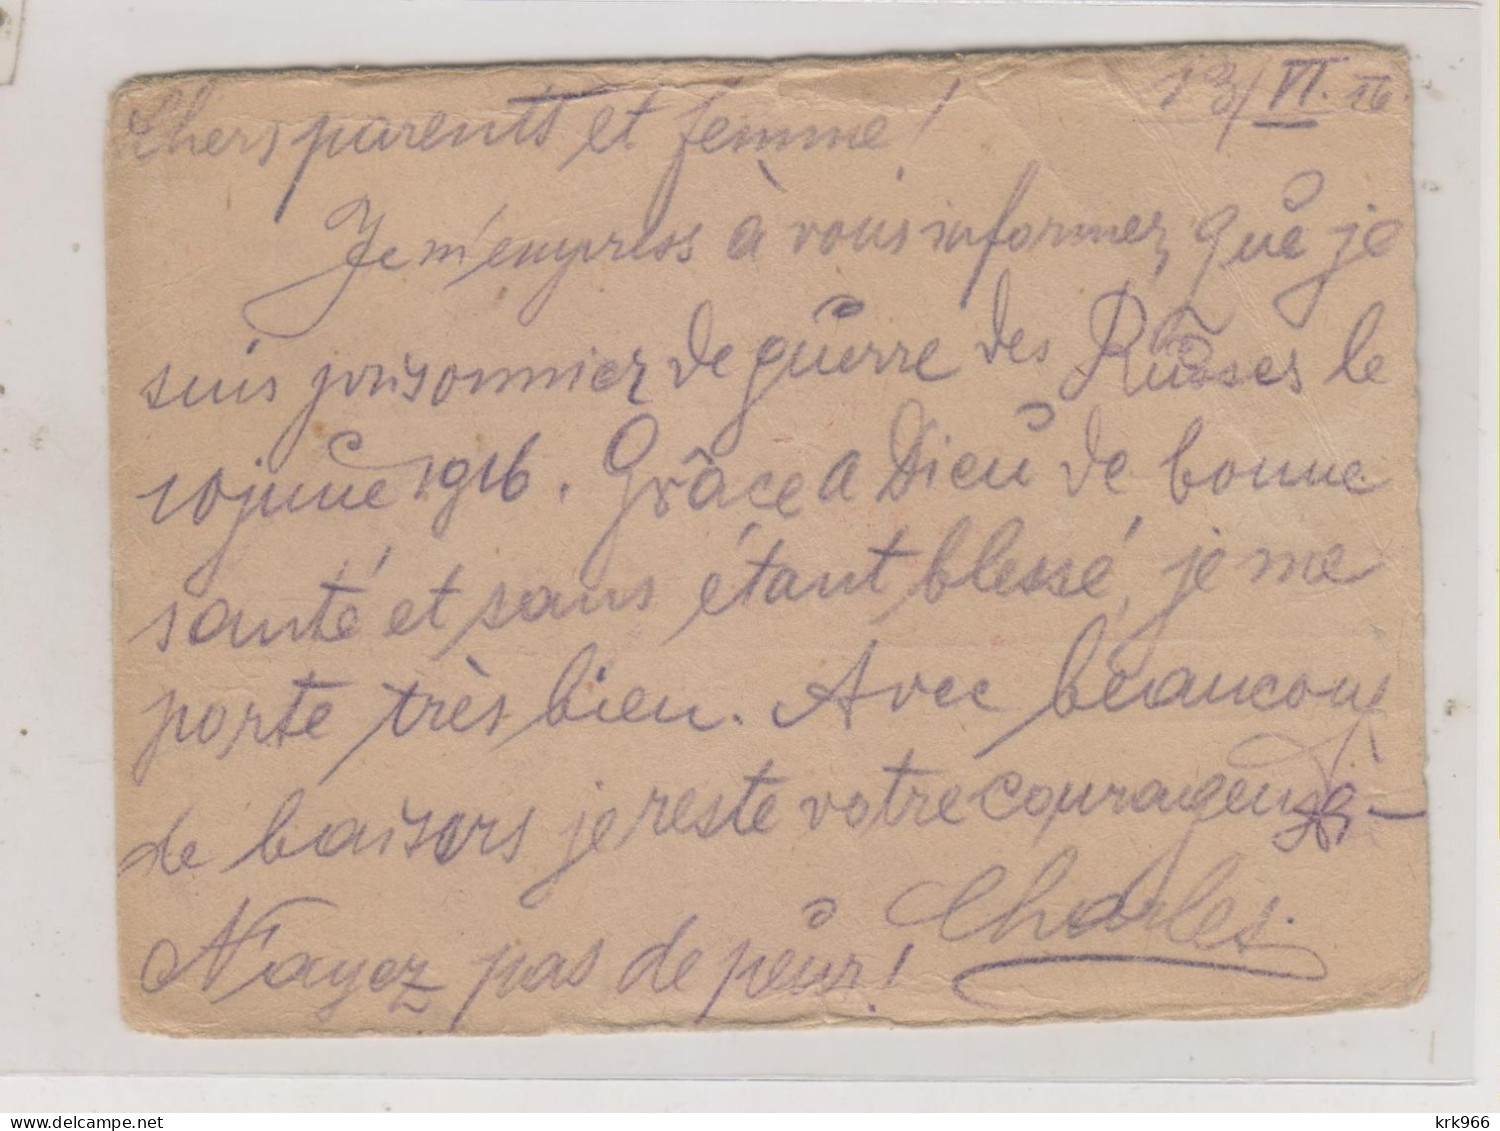 13/VI.16.
Chers parents et femme!
Je m'empress à vous informer, que je
suis prisonnier de guerre des Russes le
10 june 1916. Grâce a Dieu de bonne
santé et sans étant blessé, je me
porte très bien. Avec beaucoup
de baisers je reste votre courageux
Charles.
N'ayez pas de peur!
krk966